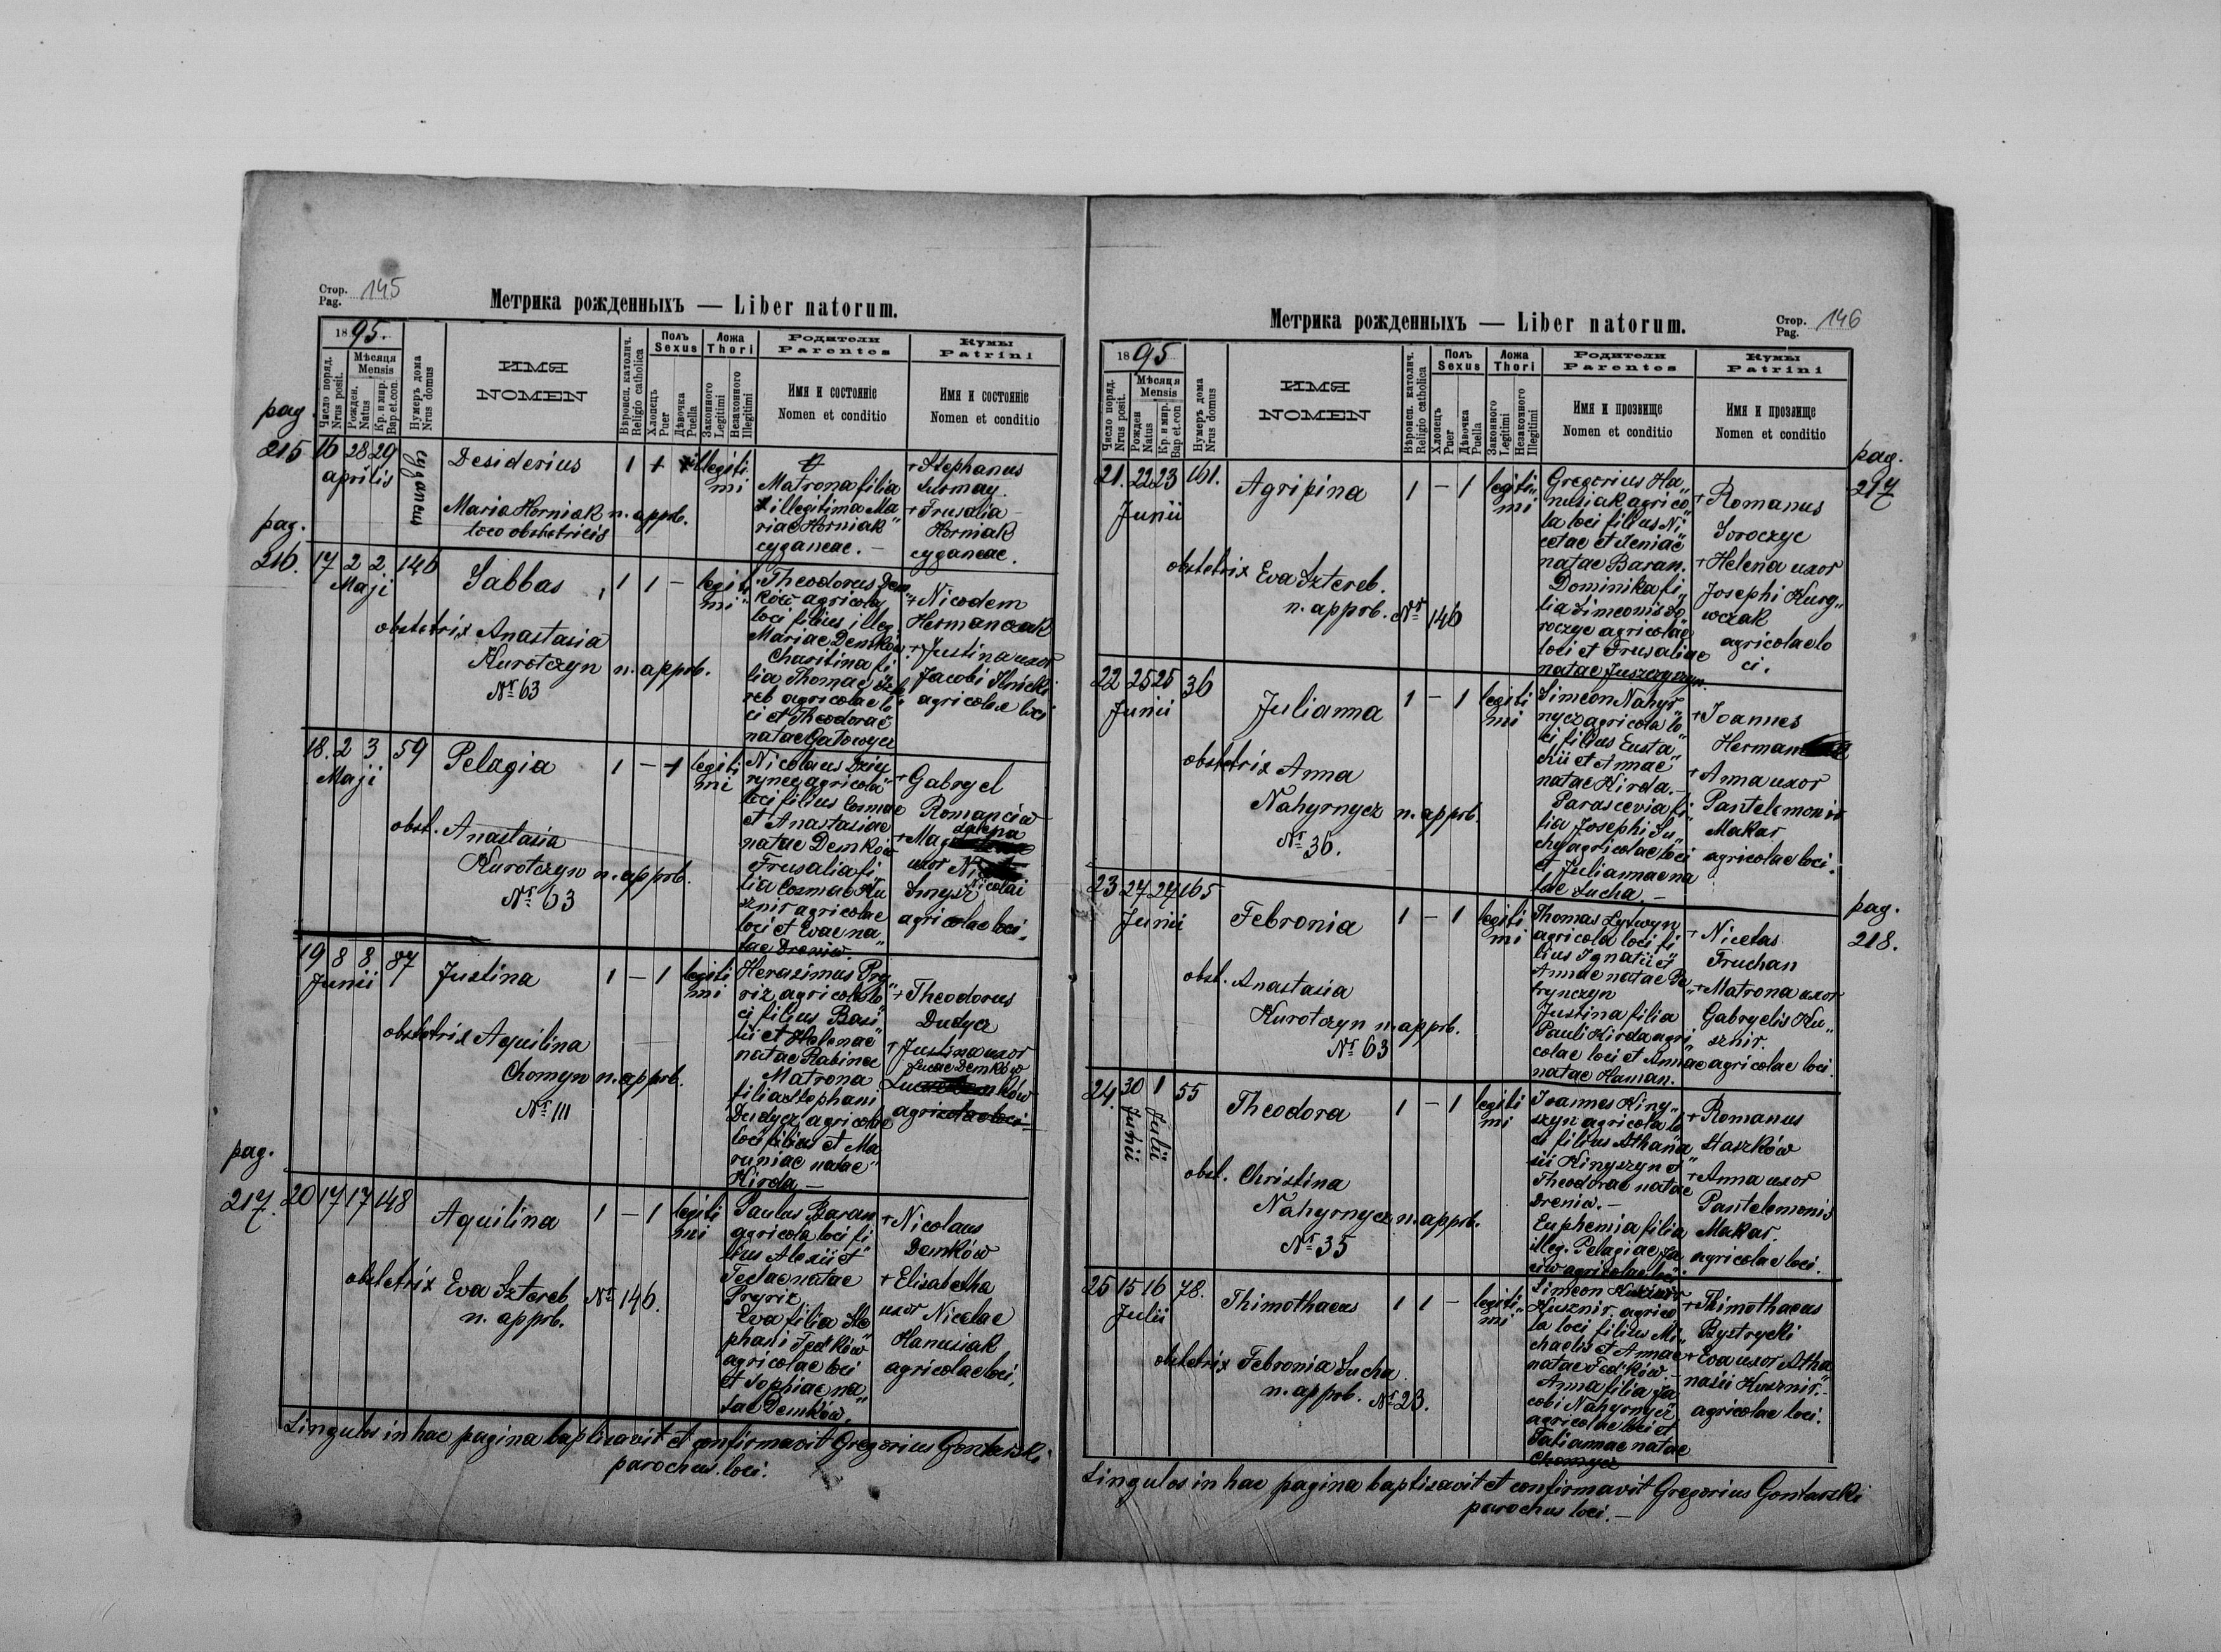 Стор.
Pag. 145
Метрика рожденныхъ — Liber natorum.
1895.
Число поряд.
Nrus posit.
Мѣсяця
Mensis
Рожден.
Natus
Кр. и мир.
Bap.et.con.
Нумеръ дома
Nrus domus
ИМЯ
NOMEN
Вѣроисп. католич.
Religio catholica
Полъ
Sexus
Хлопецъ
Puer
Дѣвочка
Puella
Ложа
Thori
Законного
Legitimi
Незаконного
Illegitimi
Родители
Parentes
Имя и состоянiе
Nomen et conditio
Кумы
Patrini
Имя и состоянiе
Nomen et conditio
pag.
215
16 28 29
aprilis
cyganeus
Desiderius
1 + illegiti
mi
Maria Horniak n. approb.
loco obstetricis
Matrona filia
illegitima Ma
riae Horniak
cyganeae. —
+ Stephanus
+ Frusalia
Horniak
cyganeae.
pag.
216.
17 2 2 146
Maji
Sabbas
1 1 — legiti
mi
obstetrix Anastasia
Kurotczyn n. approb.
Nr 63
Theodorus Dem
ków agricola
loci filius illeg.
Mariae Demków
Charitina fi
lia Thomae Szte
reb agricolae lo
ci et Theodorae
natae Gatowycz
+ Nicodem
Hermanczak
+ Justina uxor
Jacobi Ilnicki
agricolae loci
18. 2 3 59
Maji
Pelagia
1 — + legiti
mi
obst. Anastasia
Kurotczyn n. approb.
Nr 63
Nicolaus Dziu
rynec agricola
loci filius Cosmae
et Anastasiae
natae Demków
Frusalia fi
lia Cosmae Ku
sznir agricolae
loci et Evae na
tae Dreniw.
+ Gabryel
Romanciw
+ Magdalena
uxor Nicolai
agricolae loci
19 8 8 87
Junii
Justina
1 — 1 legiti
mi
obstetrix Aquilina
Chomyn n. approb.
Nr 111
Herasimus Pry
riz agricola lo
ci filius Basi
lii et Helenae
natae Rabinec
Matrona
filia Stephani
Dudycz agricolae
loci filius et Ma
runiae natae
Hirda —
+ Theodorus
Dudycz
+ Justina uxor
Lucae Demków
agricolae loci
pag.
217.
20 17 17 148
Aquilina
1 — 1 legiti
mi
obstetrix Eva Sztereb Nr 146.
n. approb.
Paulus Baran
agricola loci fi
lius Alexii et
Teclae natae
Pryriz
Eva filia Ste
phani Fedków
agricolae loci
et Sophiae na
tae Demków.
+ Nicolaus
Demków
+ Elisabetha
uxor Nicolae
Hanusiak
agricolae loci.
Singulos in hac pagina baptisavit et confirmavit Gregorius Gontarski
parochus loci.
Метрика рожденныхъ — Liber natorum.
Стор.
Pag. 146
1895
Число поряд.
Nrus posit.
Мѣсяця
Mensis
Рожден
Natus
Кр. и мир.
Bap et.con
Нумеръ дома
Nrus domus
ИМЯ
NOMEN
Вѣроисп. католич.
Religio catholica
Полъ
Sexus
Хлопецъ
Puer
Дѣвочка
Puella
Ложа
Thori
Законного
Legitimi
Незаконного
Illegitimi
Родители
Parentes
Имя и прозвище
Nomen et conditio
Кумы
Patrini
Имя и прозвище
Nomen et conditio
pag.
217
21. 22 23 161.
Junii
Agripina
1 — 1 legiti
mi
obstetrix Eva Sztereb.
n. approb. Nr 146
Gregorius Ha
nusiak agrico
la loci filius Ni
cetae et Xeniae
natae Baran.
Dominika fi
lia Simeonis So
roczyc agricolae
loci et Frusaliae
natae Juszczyszyn.
+ Romanus
Soroczyc
+ Helena uxor
Josephi Kurg
wczak
agricolae lo
ci.
22 25 25 36
Junii
Julianna
1 — 1 legiti
mi
obstetrix Anna
Nahyrnycz n. approb.
Nr 36.
Simeon Nahyr
nycz agricola lo
ci filius Eusta
chii et Annae
natae Hirda. —
Parascevia fi
lia Josephi Su
chy agricolae loci
et Juliannae na
tae Sucha. —
+ Joannes
+ Anna uxor
Pantelemonis
Makar
agricolae loci.
pag.
218.
23 27 27 165
Junii
Febronia
1 — 1 legiti
mi
obst. Anastasia
Kurotczyn n. approb.
Nr 63
Thomas Lytwyn
agricola loci fi
lius Ignatii et
Annae natae Pe
trynczyn
Justina filia
Pauli Hirda agri
colae loci et Annae
natae Haman.
+ Nicetas
Fruchan
+ Matrona uxor
Gabryelis Ku
sznir.
agricolae loci.
24. 30 1 55
Junii Julii
Theodora
1 — 1 legiti
mi
obst. Christina
Nahyrnycz n. approb.
Nr 35
Joannes Kiny
szyn agricola lo
ci filius Athana
sii Kinyszyn et
Theodorae natae
Dreniw. —
Euphemia filia
illeg. Pelagiae
agricolae loci.
+ Romanus
Staszków
+ Anna uxor
Pantelemonis
Makar.
agricolae loci.
25 15 16 78.
Julii
Thimothaeus
1 1 — legiti
mi
obstetrix Febronia Sucha
n. approb. Nr 23.
Simeon
Kusznir. agrico
la loci filius Mi
chaelis et Annae
natae Fedków. —
Anna filia Ja
cobi Nahyrnycz
agricolae loci et
Tatiannae natae
Chomycz
+ Thimothaeus
Bystrycki
+ Eva uxor Atha
nasii Kusznir. —
agricolae loci.
Singulos in hac pagina baptisavit et confirmavit Gregorius Gontarski
parochus loci. —